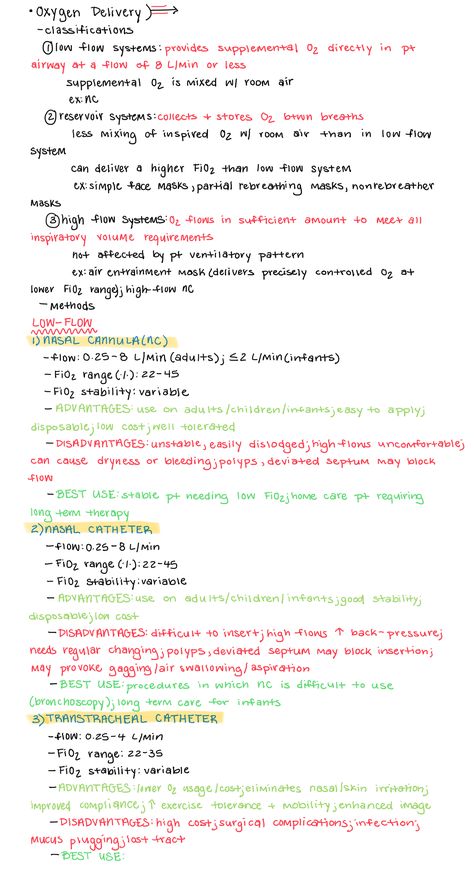 • Oxygen Delivery
- classifications
① low flow systems: provides supplemental O₂ directly in pt
airway at a flow of 8 L/min or less
supplemental O₂ is mixed w/ room air
ex: NC
② reservoir systems: collects + stores O₂ btwn breaths
less mixing of inspired O₂ w/ room air than in low flow
system
can deliver a higher FiO₂ than low flow system
ex: simple face masks, partial rebreathing masks, nonrebreather
masks
③ high flow systems: O₂ flows in sufficient amount to meet all
inspiratory volume requirements
not affected by pt ventilatory pattern
ex: air entrainment mask (delivers precisely controlled O₂ at
lower FiO₂ range); high-flow nc
- methods
LOW-FLOW
1) NASAL CANNULA (NC)
- flow: 0.25-8 L/min (adults); ≤2 L/min (infants)
- FiO₂ range (%): 22-45
- FiO₂ stability: variable
- ADVANTAGES: use on adults/children/infants; easy to apply;
disposable; low cost; well tolerated
- DISADVANTAGES: unstable, easily dislodged; high flows uncomfortable;
can cause dryness or bleeding; polyps, deviated septum may block
flow
- BEST USE: stable pt needing low FiO₂; home care pt requiring
long term therapy
2) NASAL CATHETER
- flow: 0.25-8 L/min
- FiO₂ range (%): 22-45
- FiO₂ stability: variable
- ADVANTAGES: use on adults/children/infants; good stability;
disposable; low cost
- DISADVANTAGES: difficult to insert; high flows ↑ back-pressure;
needs regular changing; polyps, deviated septum may block insertion;
may provoke gagging/air swallowing/aspiration
- BEST USE: procedures in which NC is difficult to use
(bronchoscopy); long term care for infants
3) TRANSTRACHEAL CATHETER
- flow: 0.25-4 L/min
- FiO₂ range: 22-35
- FiO₂ stability: variable
- ADVANTAGES: lower O₂ usage/cost; eliminates nasal/skin irritation;
improved compliance; ↑ exercise tolerance + mobility; enhanced image
- DISADVANTAGES: high cost; surgical complications; infection;
mucus plugging; lost tract
- BEST USE: